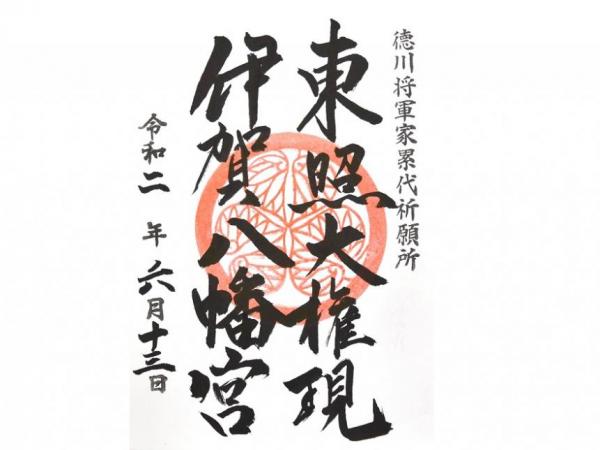 徳川将軍家累代祈願所
東照大権現
伊賀八幡宮
令和二年六月十三日